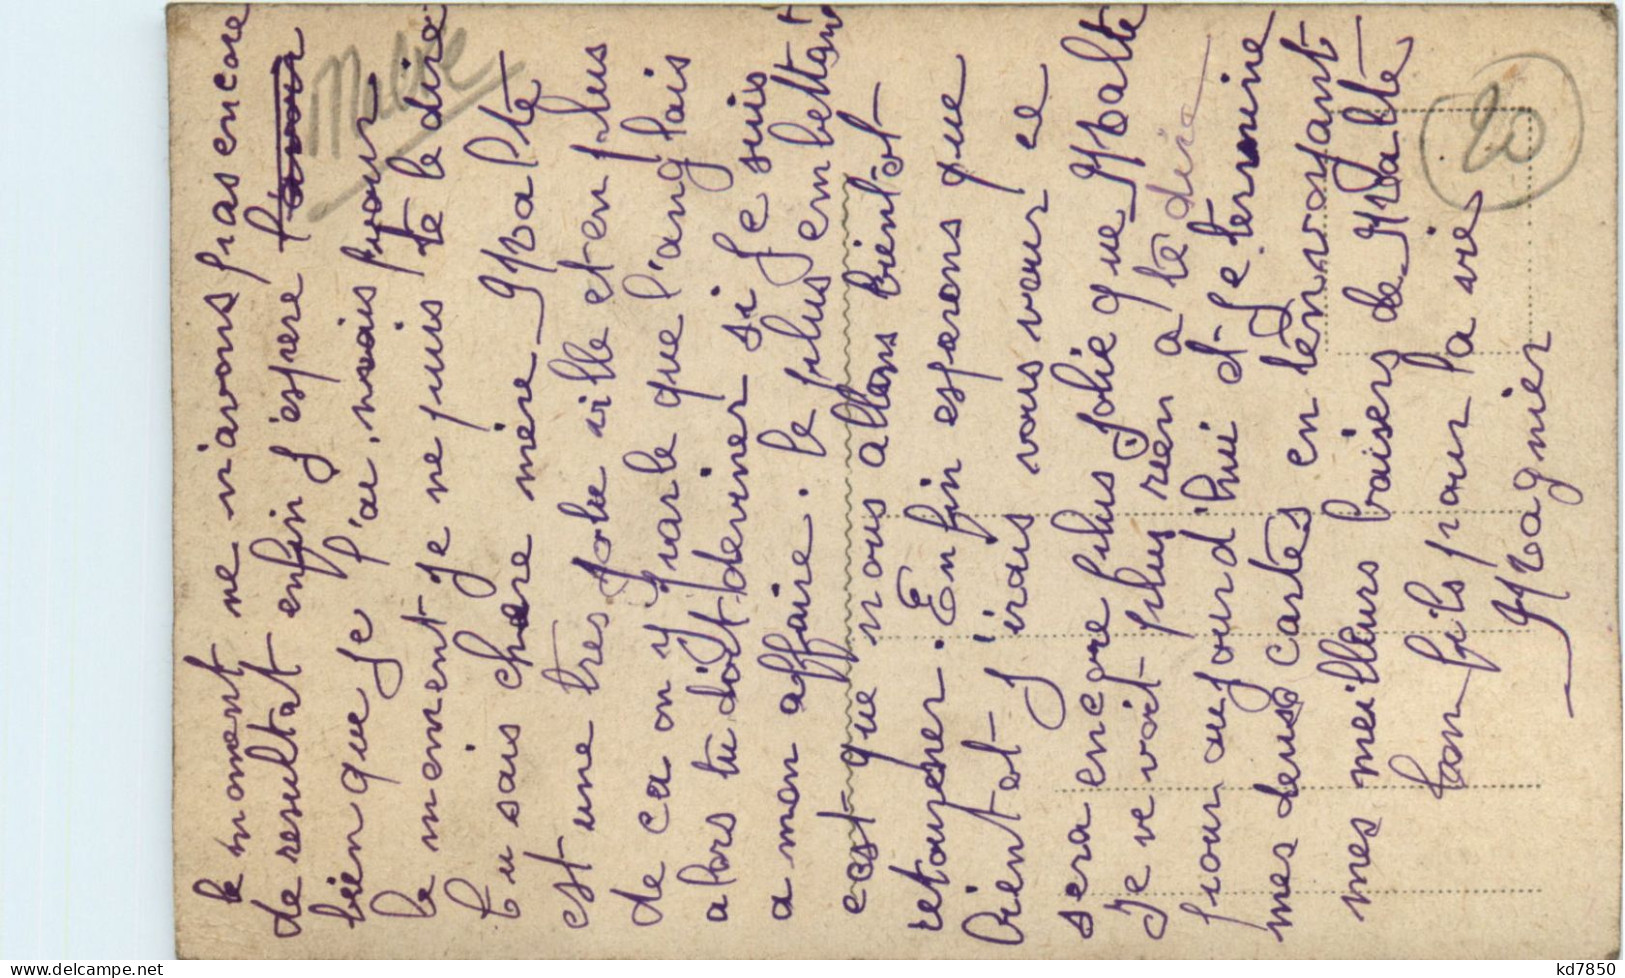 le moment ne n'avons pas encore
de resultat enfin j'espere l'avoir
bien que je l'ai, mais pour
le moment je ne puis te le dire
Tu sais chere mère Malte
est une tres jolie ville et en plus
de ca on y parle que l'anglais
alors tu doit deviner si je suis
a mon affaire. le plus embettant
c'est que nous allons bientot
retourner. Enfin esperons que
bientot j'irais vous voir ce
sera encore plus jolie que Malte
Je ne voit plus rien a te dire
pour aujourd'hui et je termine
mes deux cartes en t'envoyant
mes meilleurs baisers de Malte
ton fils pour la vie
Magnier
Malte
20
kd7850